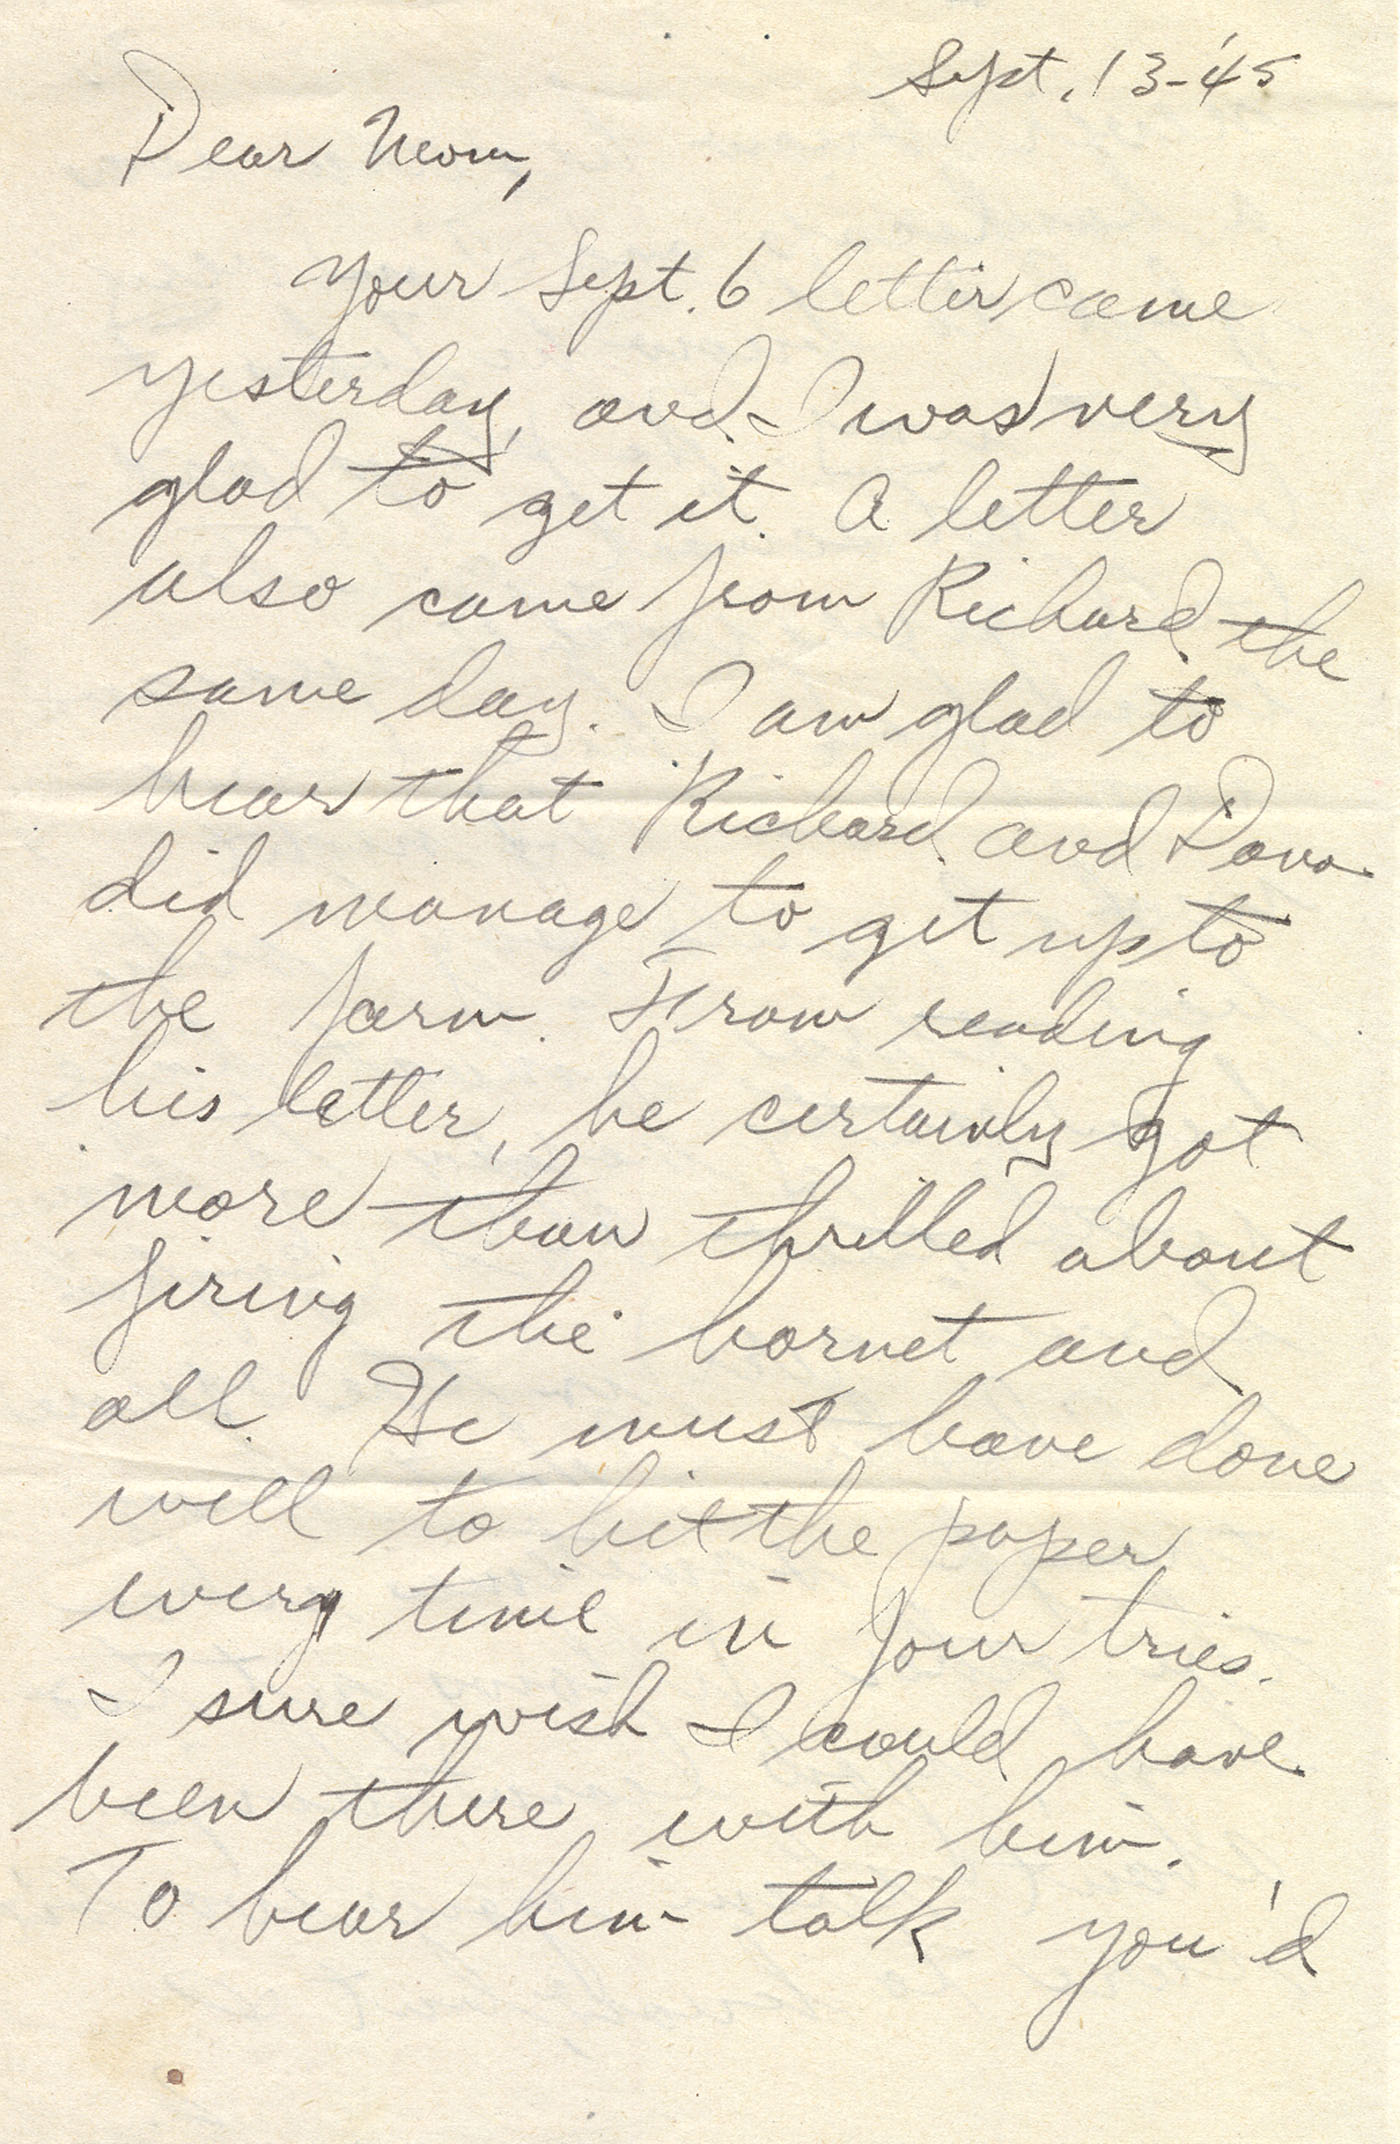 Sept. 13-'45
Dear Mom,
Your Sept. 6 letter came
yesterday, and I was very
glad to get it. A letter
also came from Richard the
same day. I am glad to
hear that Richard and Dona
did manage to get up to
the farm. From reading
his letter, he certainly got
more than thrilled about
firing the hornet and
all. He must have done
well to hit the paper
every time in four tries.
I sure wish I could have
been there with him.
To hear him talk you'd